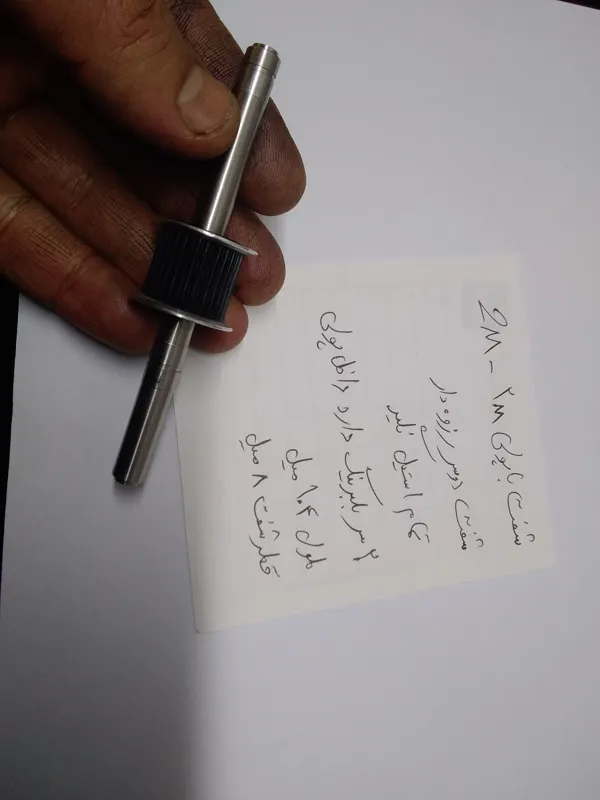 شفت با پولی 2M - ۲M
شفت دوسر رزوه دار
تمام استیل نگیر
۲ سر بلبرینگ دارد داخل پولی
طول ۱۰۴ میل
قطر شفت ۸ میل